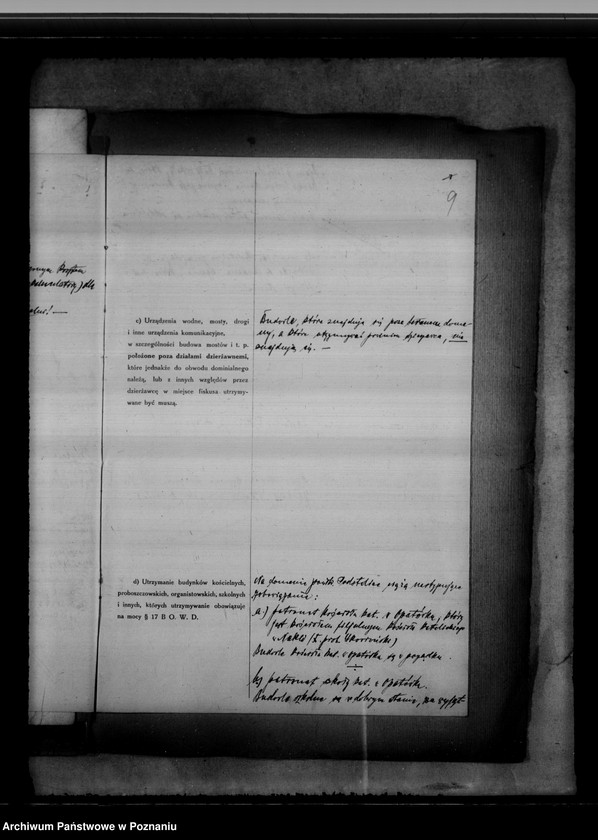 9
c) Urządzenia wodne, mosty, drogi
i inne urządzenia komunikacyjne,
w szczególności budowa mostów i t. p.
położone poza działami dzierżawnemi,
które jednakże do obwodu dominialnego
należą, lub z innych względów przez
dzierżawcę w miejsce fiskusa utrzymy-
wane być muszą.
Budowle, które znajdują się poza terenem dome-
ny, a które utrzymywać powinien dzierżawca, nie
znajdują się. —
d) Utrzymanie budynków kościelnych,
proboszczowskich, organistowskich, szkolnych
i innych, których utrzymywanie obowiązuje
na mocy § 17 B O. W. D.
Na domenie państw. ciążą następujące
zobowiązania:
a.) patronat kościoła kat. w Opatówku, który
jest kościołem filjalnym kościoła katolickiego
Budowle kościoła kat. w Opatówku są w porządku.
b) patronat szkoły kat. w Opatówku.
Budowle szkolne są w dobrym stanie,
Archiwum Państwowe w Poznaniu